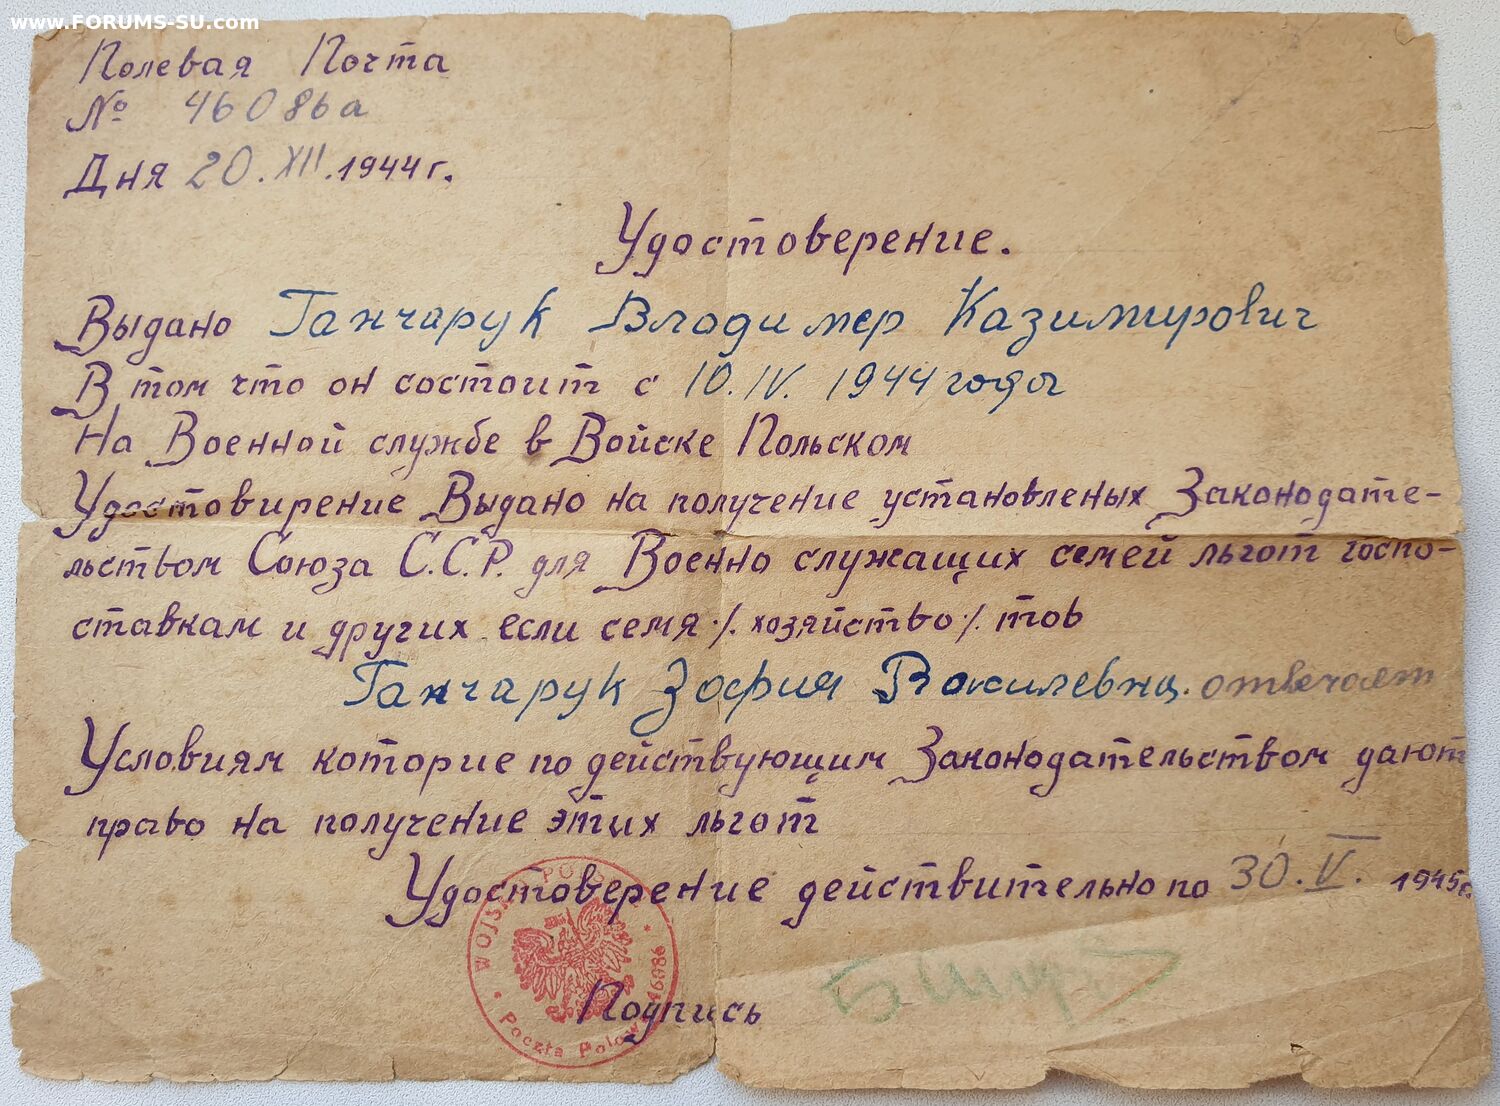 www.FORUMS-SU.com
Полевая Почта
№ 46086а
Дня 20.XII.1944г.
Удостоверение.
Выдано Ганчарук Владимер Казимирович
В том что он состоит с 10.IV.1944 годы
На Военной службе в Войске Польском
Удостовирение Выдано на получение установленых Законодате-
льством Союза С.С.Р. для Военно служащих семей льгот госпо-
ставкам и других если семя ./. хозяйство ./. тов
Ганчарук Зофия Василевна отвечает
Условиям которие по действующим Законодательством дают
право на получение этих льгот
Удостоверение действительно по 30.V. 1945г.
Подпись
WOJSKO POLSKIE
Poczta Polowa 46086